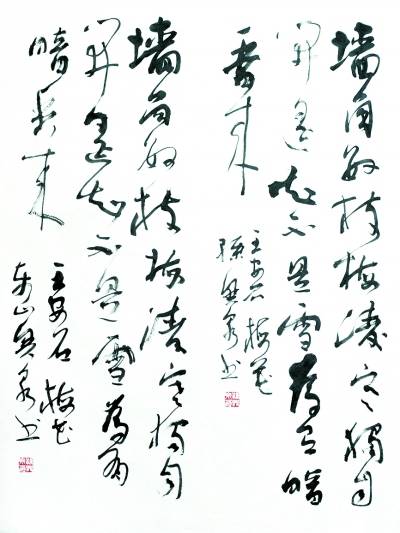 墙角数枝梅凌寒獨自
開遥知不是雪為有暗
香来
王安石梅花
墙角数枝梅凌寒獨自
開遥知不是雪為有
暗香来
王安石梅花